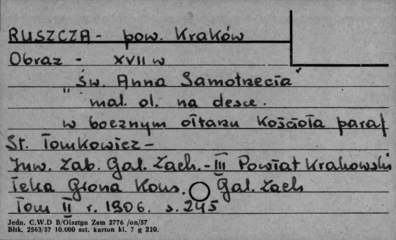 RUSZCZA - pow. Kraków
Obraz - XVII w
"św. Anna Samotrzecia"
mal. ol. na desce.
w bocznym ołtarzu Kościoła paraf
St. Tomkowicz -
Inw. Zab. Gal. Zach. - III Powiat Krakowski
Teka Grona Kons. Gal. Zach
Tom II r. 1906. s. 245
Jedn. C.W.D B/Olsztyn Zam 2776 /on/57
Błtk. 2563/57 10.000 szt. karton kl. 7 g 220.